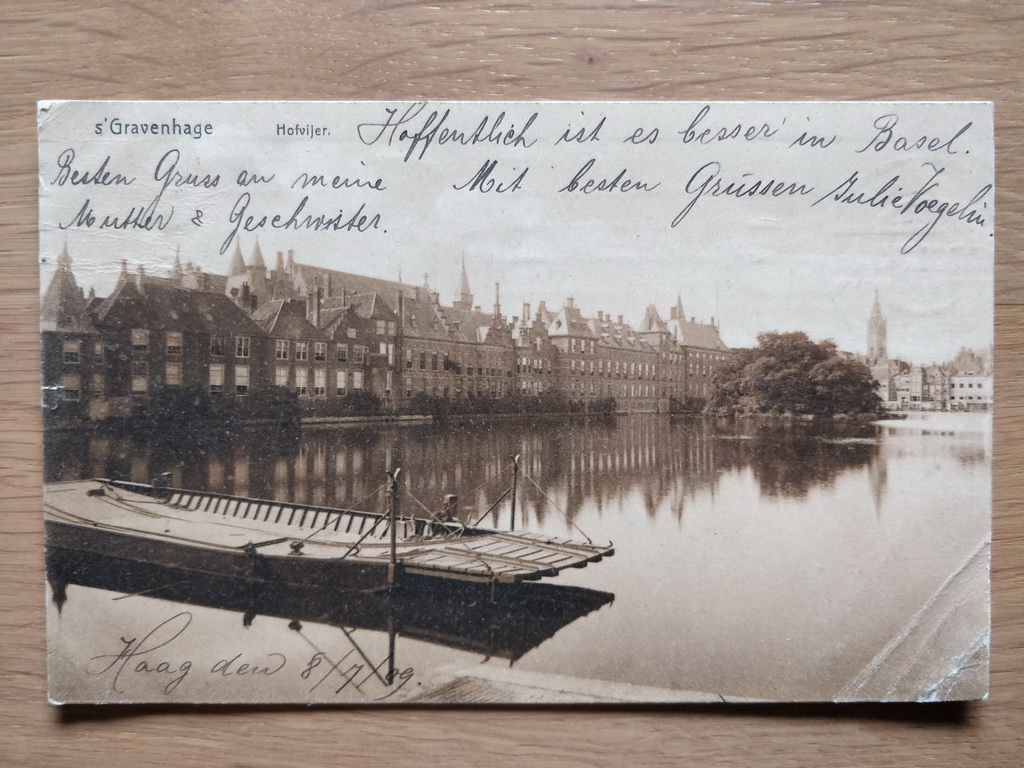 s'Gravenhage Hofvijer.
Hoffentlich ist es besser in Basel.
Besten Gruss an meine
Mutter & Geschwister.
Mit besten Grüssen Julie Voegelin.
Haag den 8/7/09.